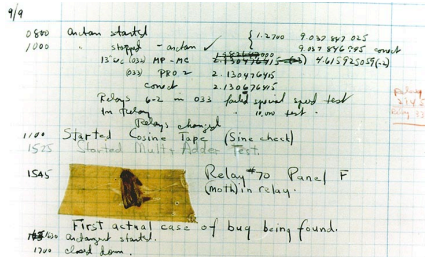 9/9
0800 antan started
{ 1.2700 9.037 847 025
1000 " stopped - antan ✓ 9.037 846 795 conect
13"uc (032) MP-MC 2.130476415 (-3) 4.615925059(-2)
(033) PRO 2 2.130476415
conect 2.130676415
Relays 6-2 in 033 failed special speed test
In Relay " 10.000 test.
Relays changed
Relay
2145
1100 Started Cosine Tape (Sine check)
1525 Started Mult+Adder Test.
1545 Relay #70 Panel F
(moth) in relay.
First actual case of bug being found.
1630 antangent started.
1700 closed down.